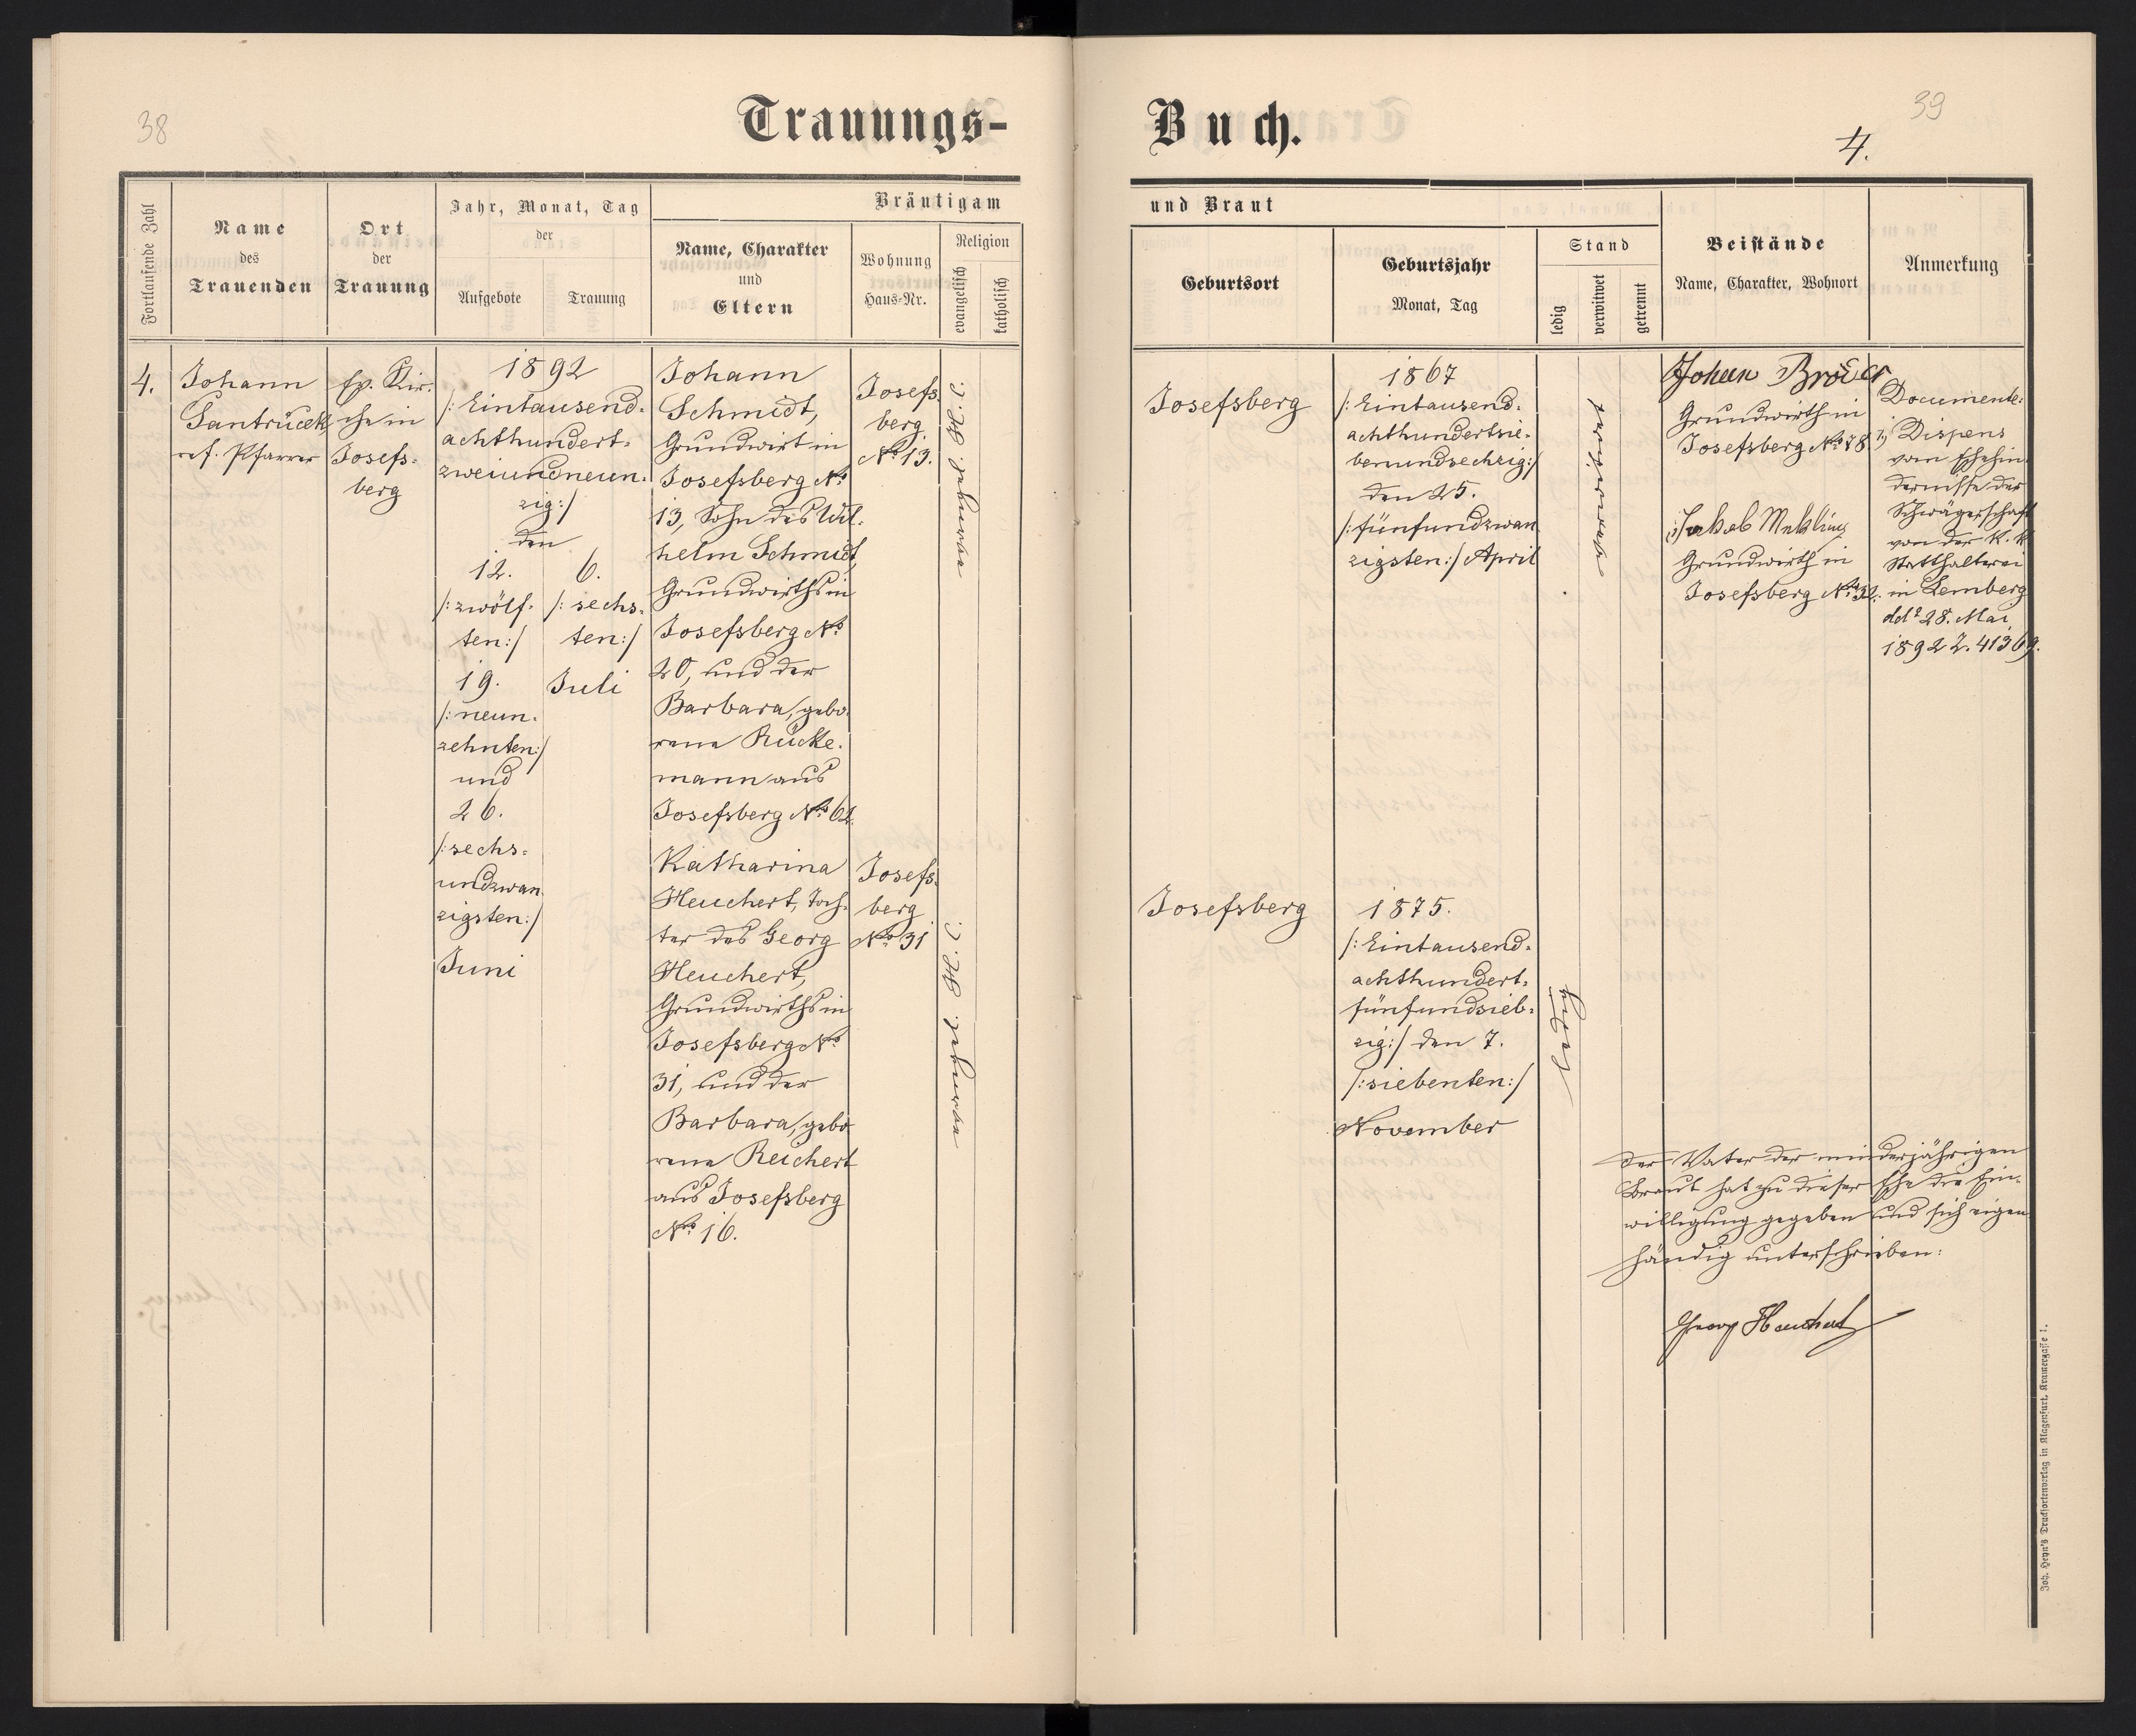 38
Trauungs-
Fortlaufende Zahl
Name
des
Trauenden
Ort
der
Trauung
Jahr, Monat, Tag
der
Aufgebote
Trauung
Bräutigam
Name, Charakter
und
Eltern
Wohnung
Haus-Nr.
Religion
evangelisch
katholisch
4.
Johann
Gantrücek,
ref. Pfarrer
Ev. Kir-
che in
Josefs-
berg
1892
/: Eintausend-
achthundert-
zweiundneun-
zig :/
den
12.
/: zwölf-
ten :/
19.
/: neun-
zehnten :/
und
26.
/: sechs-
undzwan-
zigsten :/
Juni
6.
/: sechs-
ten :/
Juli
Johann
Schmidt,
Grundwirt in
Josefsberg No
13, Sohn des Wil-
helm Schmidt,
Grundwirths in
Josefsberg No
20, und der
Barbara, gebo-
rene Rücke-
mann aus
Josefsberg No 62.
Josefs-
berg
No 13.
Katharina
Heuchert, Toch-
ter des Georg
Heuchert,
Grundwirths in
Josefsberg No
31, und der
Barbara, gebo
rene Reichert
aus Josefsberg
No 16.
Josefs-
berg
No 31
Buch.
39
4.
und Braut
Geburtsort
Geburtsjahr
Monat, Tag
Stand
ledig
verwitwet
getrennt
Beistände
Name, Charakter, Wohnort
Anmerkung
Josefsberg
1867
/: Eintausend-
achthundertsie-
benundsechzig :/
den 25.
/: fünfundzwan
zigsten :/ April
Johan Bröder
Grundwirth in
Josefsberg No 78.
Jakob
Grundwirth in
Josefsberg No 32.
Documente:
1.) Dispens
vom Ehehin-
dernisse der
Schwägerschaft
von der K. K.
Statthalterei
in Lemberg
ddo 28. Mai
1892 Z. 41369.
Josefsberg
1875.
/: Eintausend-
achthundert-
fünfundsieb-
zig :/ den 7.
/: siebenten :/
November
ledig
Der Vater der minderjährigen
Braut hat zu dieser Ehe die Ein-
willigung gegeben und sich eigen
händig unterschrieben:
Georg Heuchert
Joh. Heyn's Drucksortenverlag in Klagenfurt, Kramergasse 1.